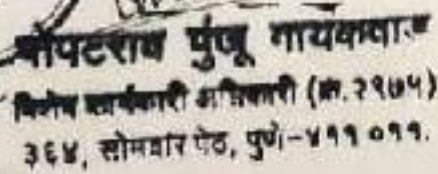 पोपटराव पुंजू गायकवाड
विशेष कार्यकारी अधिकारी (क्र. २१७५)
३६४, सोमवार पेठ, पुणे-४११ ०११.